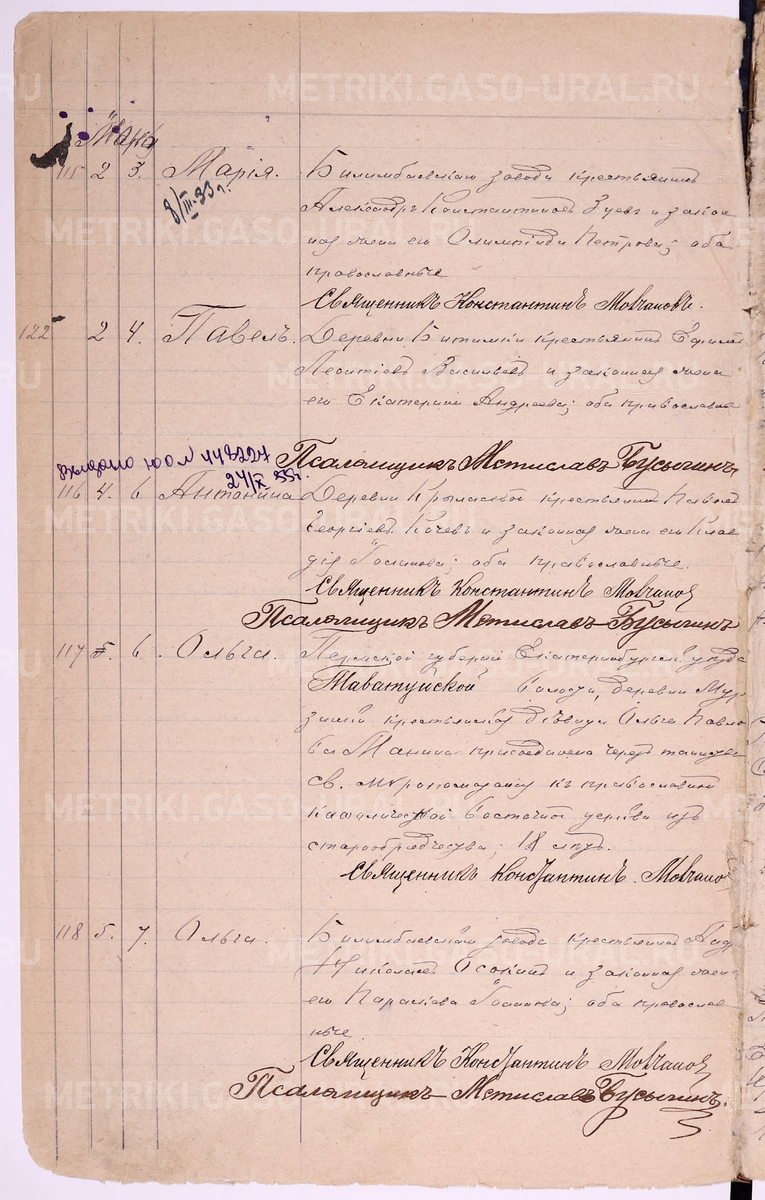 Мартъ
115 2 3. Марія. Билимбаевскаго завода крестьянинъ
8/III-33 г. Александръ Константиновъ Зуевъ и закон
ная жена его Олимпіада Петрова; оба
православные
Священникъ Константинъ Мовчановъ.
122 2 4. Павелъ. Деревни Битимки крестьянинъ Ефимъ
Леонтіевъ Васильевъ и законная жена
его Екатерина Андреева; оба православные
Псаломщикъ Мстиславъ Бусыгинъ
Выдано
24/IX 55г.
116 4. 6. Антонина Деревни крестьянинъ Павелъ
Георгіевъ Кочевъ и законная жена его Клав
дія оба православные.
Священникъ Константинъ Мовчанов
Псаломщикъ Мстиславъ Бусыгинъ
117 5. 6. Ольга. Пермской губерніи Екатеринбургск. уѣзда
Таватуйской волости, деревни Мур
зинки крестьянская дѣвица Ольга Павло
ва Манина присоединена чрезъ таинство
св. мѵропомазанія къ православной
каѳолической восточной церкви изъ
старообрядчества; 18 лѣтъ.
Священникъ Константинъ. Мовчано
118 5. 7. Ольга. Билимбаевскаго завода крестьянинъ
Николаевъ Осокинъ и законная жена
его Параскева Іоаннова; оба православ
ные
Священникъ Константинъ Мовчанов
Псаломщикъ Мстиславъ Бусыгинъ.
METRIKI.GASO-URAL.RU